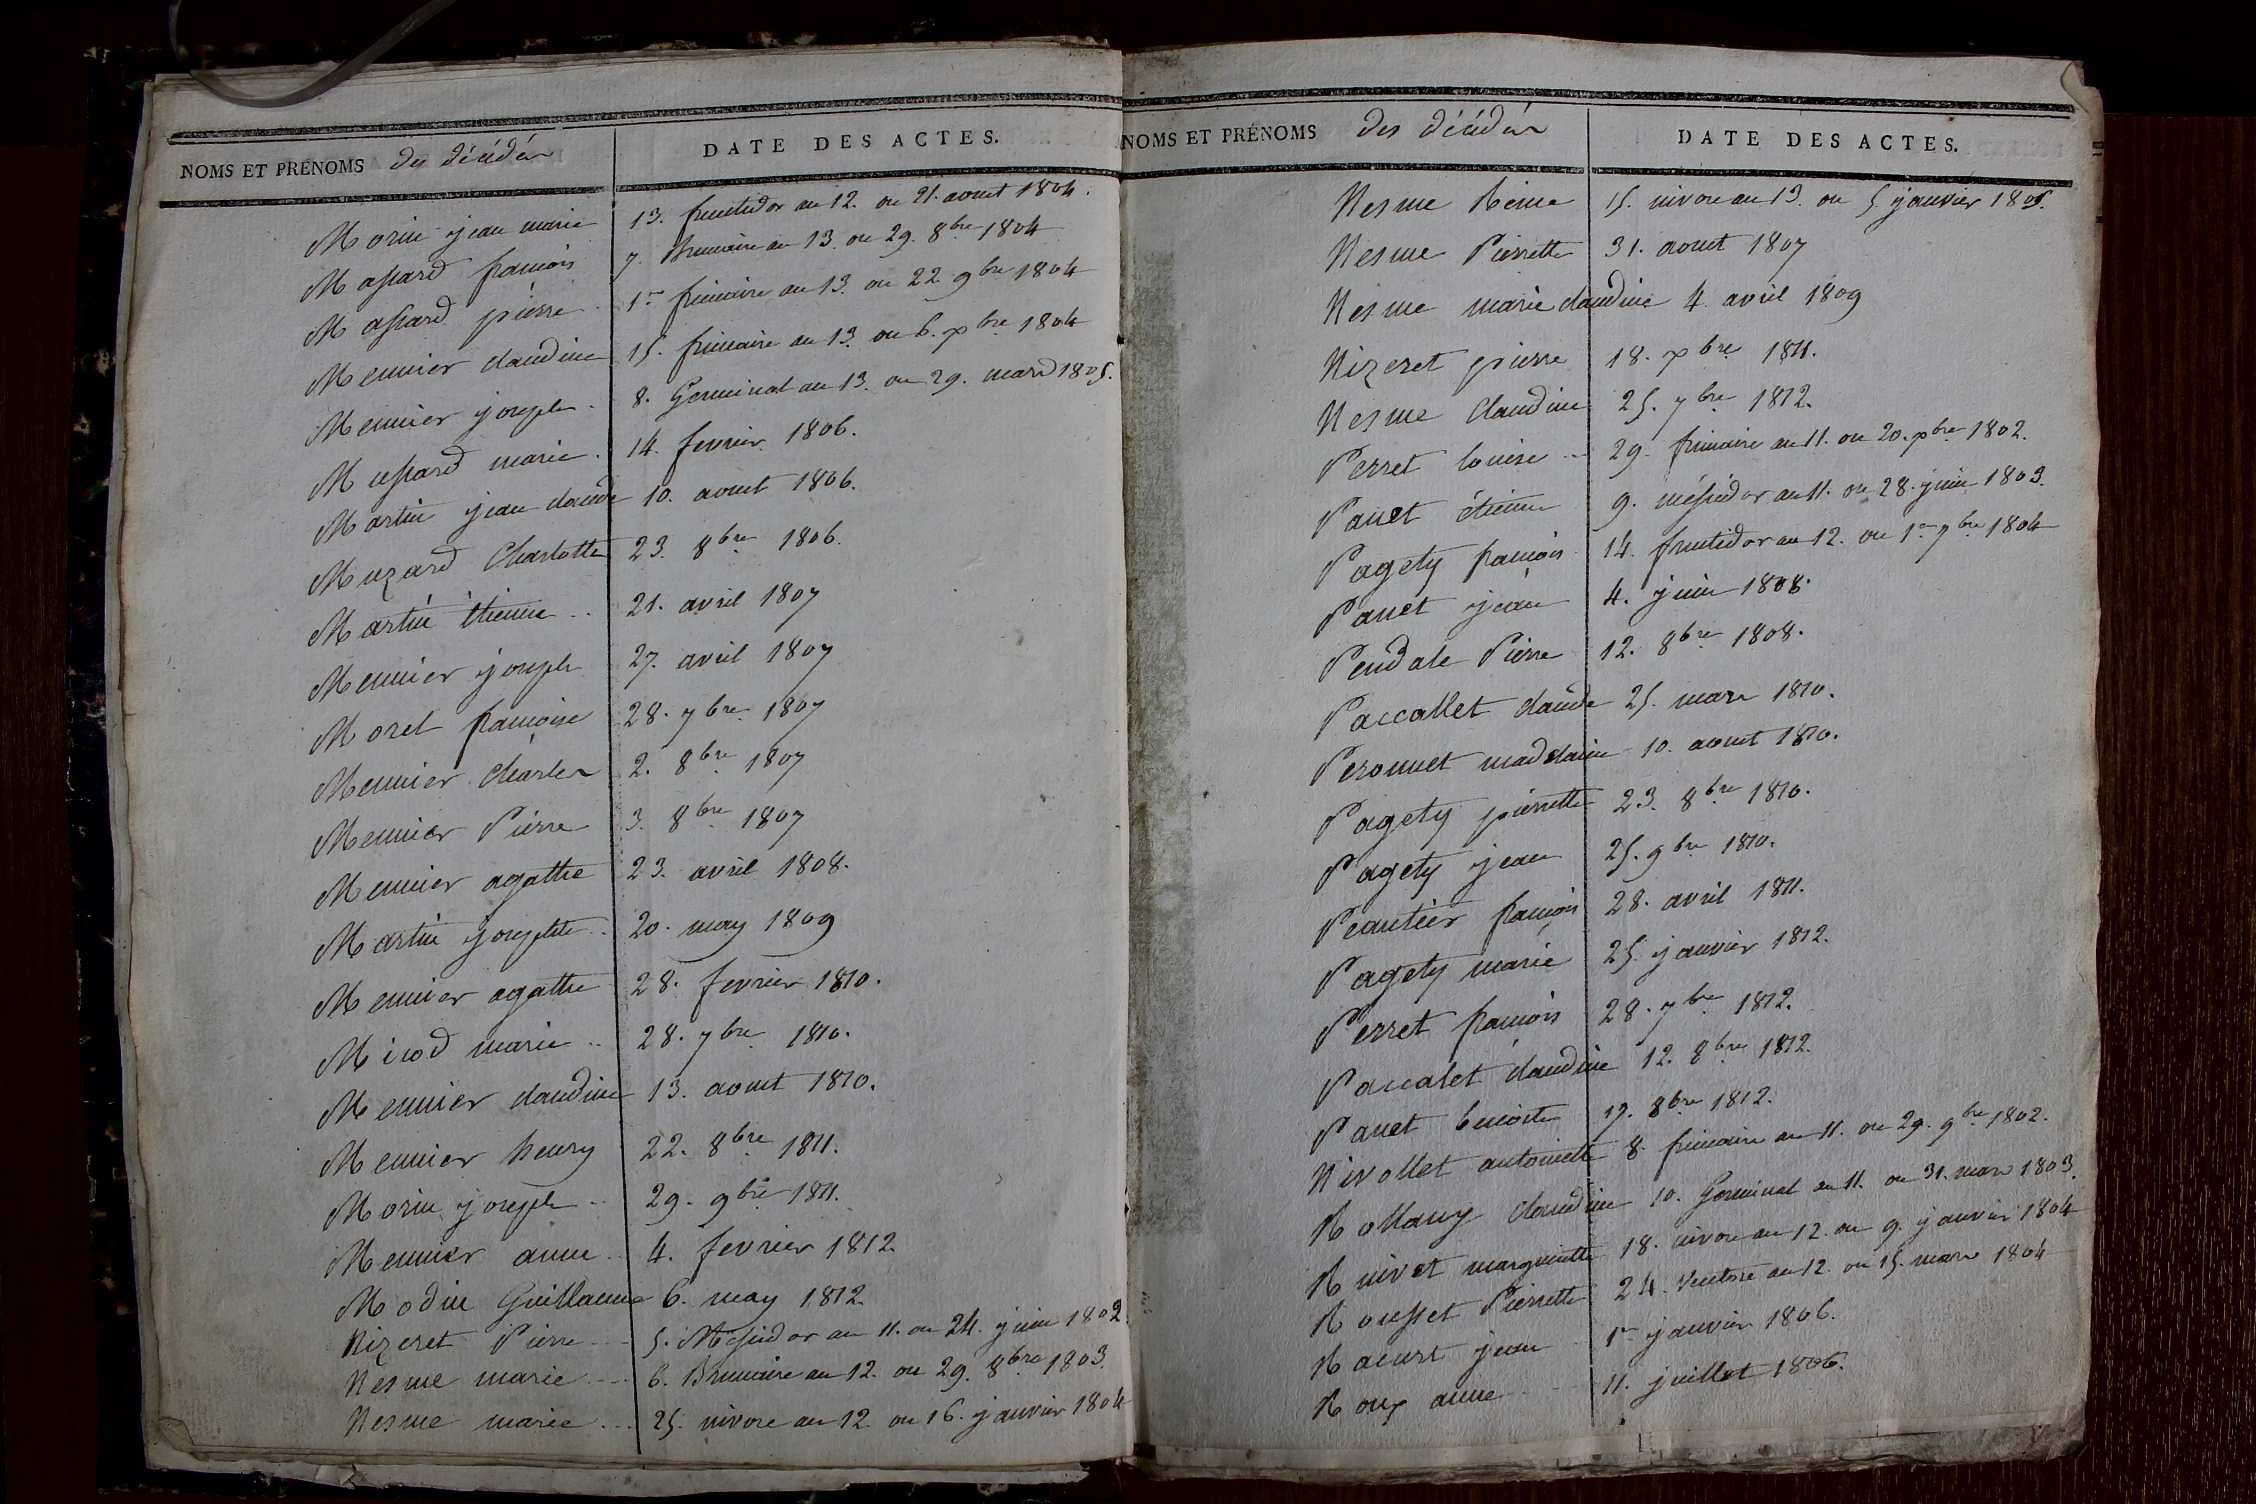 NOMS ET PRÉNOMS des décédés
DATE DES ACTES.
Morin jean marie 13. fructidor an 12. ou 21. aout 1804.
Massard francois 7 Brumaire an 13. ou 29. 8bre 1804
Massard pierre 1er frimaire an 13. ou 22 9bre 1804
Meunier claudine 15. frimaire an 13. ou 6. xbre 1804
Meunier joseph 8. Germinal an 13. ou 29. mars 1805.
Mussard marie 14. fevrier 1806.
Martin jean claude 10. aout 1806.
Muzard Charlotte 23. 8bre 1806.
Martin étienne 21. avril 1807
Meunier joseph 27. avril 1807
Morel francoise 28. 7bre 1807
Meunier charles 2. 8bre 1807
Meunier Pierre 3. 8bre 1807
Meunier agathe 23. avril 1808.
Martin josephte 20. may 1809
Meunier agathe 28. fevrier 1810.
Micod marie 28. 7bre 1810.
Meunier claudine 13. aout 1810.
Meunier henry 22. 8bre 1811.
Morin joseph 29. 9bre 1811.
Meunier anne 4. fevrier 1812
Modin Guillaume 6. may 1812
Nizeret Pierre 5. Messidor an 11. ou 24. juin 1802.
Nesme marie 6. Brumaire an 12. ou 29. 8bre 1803.
Nesme marie 25. nivose an 12. ou 16. janvier 1804
NOMS ET PRÉNOMS des décédés
DATE DES ACTES.
Nesme 15. nivose an 13. ou 5. janvier 1805.
Nesme Pierrette 31. aout 1807
Nesme marie claudine 4. avril 1809
Nizeret pierre 18. xbre 1811.
Nesme claudine 25. 7bre 1812.
Perret louise 29. frimaire an 11. ou 20. xbre 1802.
Panet étienne 9. messidor an 11. ou 28. juin 1803.
Pagety francois 14. fructidor an 12. ou 1er 7bre 1804
Panet jean 4. juin 1808.
Pendale Pierre 12. 8bre 1808.
Paccallet claude 25. mars 1810.
Peronnet madelaine 10. aout 1810.
Pagety pierrette 23. 8bre 1810.
Pagety jean 25. 9bre 1810.
Peautier francois 28. avril 1811.
Pagety marie 25. janvier 1812.
Perret francois 28. 7bre 1812.
Paccalet claudine 12. 8bre 1812.
Panet benoite 17. 8bre 1812.
Nivollet antoinette 8. frimaire an 11. ou 29. 9bre 1802.
Rollany claudine 10. Germinal an 11. ou 31. mars 1803.
Ruivet marguerite 18. nivose an 12. ou 9. janvier 1804
Rousset Pierrette 24. Ventose an 12. ou 15. mars 1804
jean 1er janvier 1806.
Roux anne 11. juillet 1806.